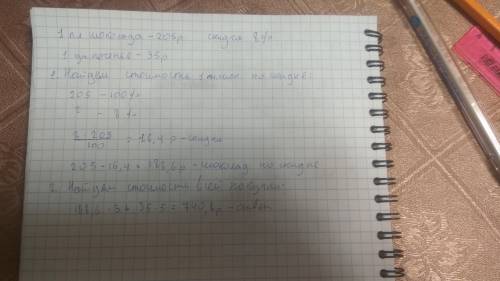 1 пл шоколада - 205р скидка 8%
1 уп печенье - 35р
1. Найдем стоимость 1 плитк по скидке:
205 - 100%
? - 8%
8·205/100 = 16,4 р - скидка
205 - 16,4 = 188,6р - шоколад по скидке
2. Найдем стоимость всей покупки:
188,6 · 3 + 35 · 5 = 740,8р - ответ